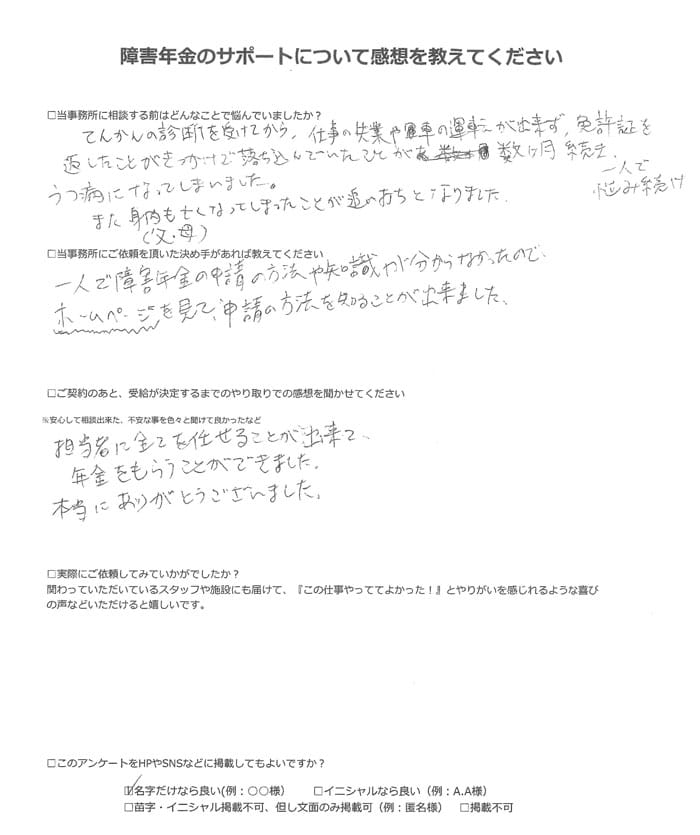 障害年金のサポートについて感想を教えてください
□当事務所に相談する前はどんなことで悩んでいましたか？
てんかんの診断を受けてから、仕事の失業や車の運転が出来ず、免許証を
返したことがきっかけで落ち込んでいたことが数ヶ月続き、
一人で
悩み続け
うつ病になってしまいました。
また身内も亡くなってしまったことが追のおちとなりました。
(父・母)
□当事務所にご依頼を頂いた決め手があれば教えてください
一人で障害年金の申請の方法や知識が分からなかったので、
ホームページを見て、申請の方法を知ることが出来ました、
□ご契約のあと、受給が決定するまでのやり取りでの感想を聞かせてください
※安心して相談出来た、不安な事を色々と聞けて良かったなど
担当者に全てを任せることが出来て、
年金をもらうことができました。
本当にありがとうございました。
□実際にご依頼してみていかがでしたか？
関わっていただいているスタッフや施設にも届けて、『この仕事やっててよかった！』とやりがいを感じれるような喜び
の声などいただけると嬉しいです。
□このアンケートをHPやSNSなどに掲載してもよいですか？
☑名字だけなら良い(例：〇〇様）　□イニシャルなら良い（例：A.A様）
□苗字・イニシャル掲載不可、但し文面のみ掲載可（例：匿名様）　□掲載不可